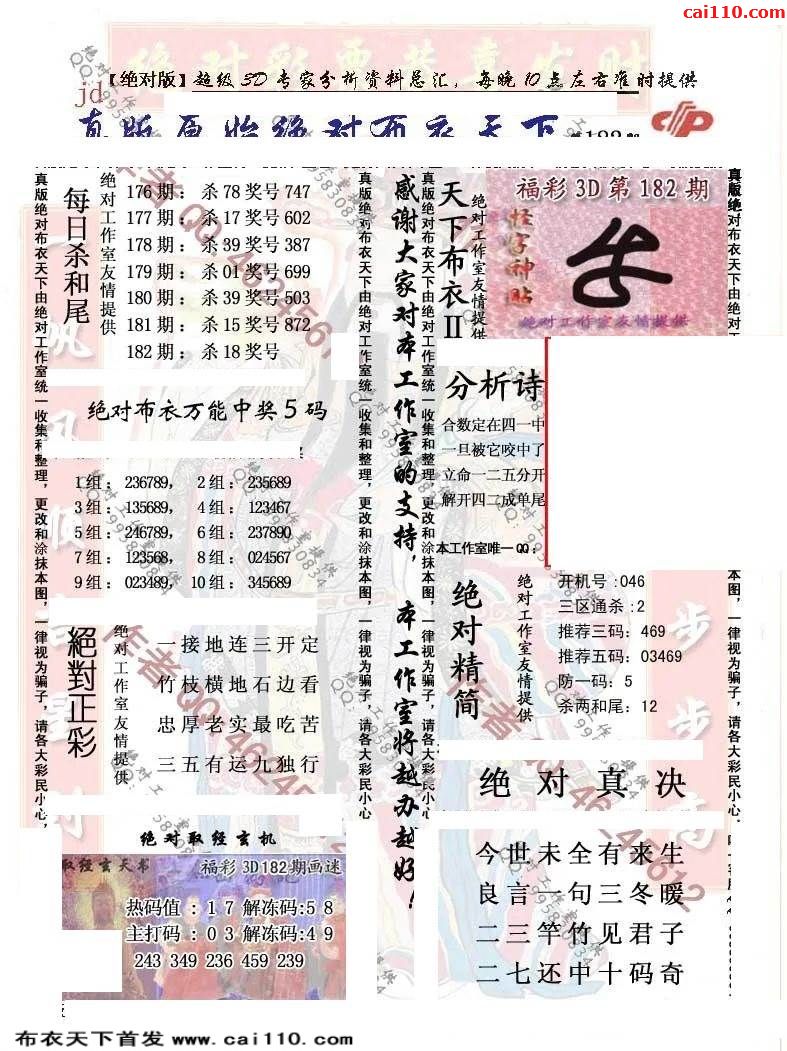 cai110.com
【绝对版】超级3D专家分析资料总汇，每晚10点左右准时提供
jd
真版原始绝对布衣天下
每日杀和尾
绝对工作室友情提供
176期：杀78奖号747
177期：杀17奖号602
178期：杀39奖号387
179期：杀01奖号699
180期：杀39奖号503
181期：杀15奖号872
182期：杀18奖号
真版绝对布衣天下由绝对工作室统一收集和整理，更改和涂抹本图，一律视为骗子，请各大彩民小心。
感谢大家对本工作室的支持，本工作室将越办越好！
真版绝对布衣天下由绝对工作室统一收集和整理，更改和涂抹本图，一律视为骗子，请各大彩民小心。
天下布衣II
绝对工作室友情提供
福彩3D第182期
怪字神贴
绝对工作室友情提供
绝对布衣万能中奖5码
1组：236789，2组：235689
3组：135689，4组：123467
5组：246789，6组：237890
7组：123568，8组：024567
9组：023489，10组：345689
分析诗
合数定在四一中
一旦被它咬中了
立命一二五分开
解开四二成单尾
本工作室唯一QQ：
絕對正彩
绝对工作室友情提供
一接地连三开定
竹枝横地石边看
忠厚老实最吃苦
三五有运九独行
绝对精简
绝对工作室友情提供
开机号:046
三区通杀:2
推荐三码：469
推荐五码：03469
防一码：5
杀两和尾：12
绝对真决
今世未全有来生
良言一句三冬暖
二三竿竹见君子
二七还中十码奇
绝对取经玄机
取经玄天书
福彩3D182期画迷
热码值：17解冻码:58
主打码：03解冻码:49
243 349 236 459 239
布衣天下首发 www.cai110.com